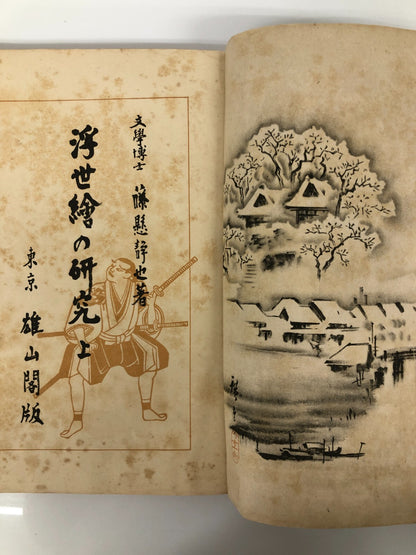 文學博士 藤懸靜也著
浮世繪の研究 上
東京 雄山閣版